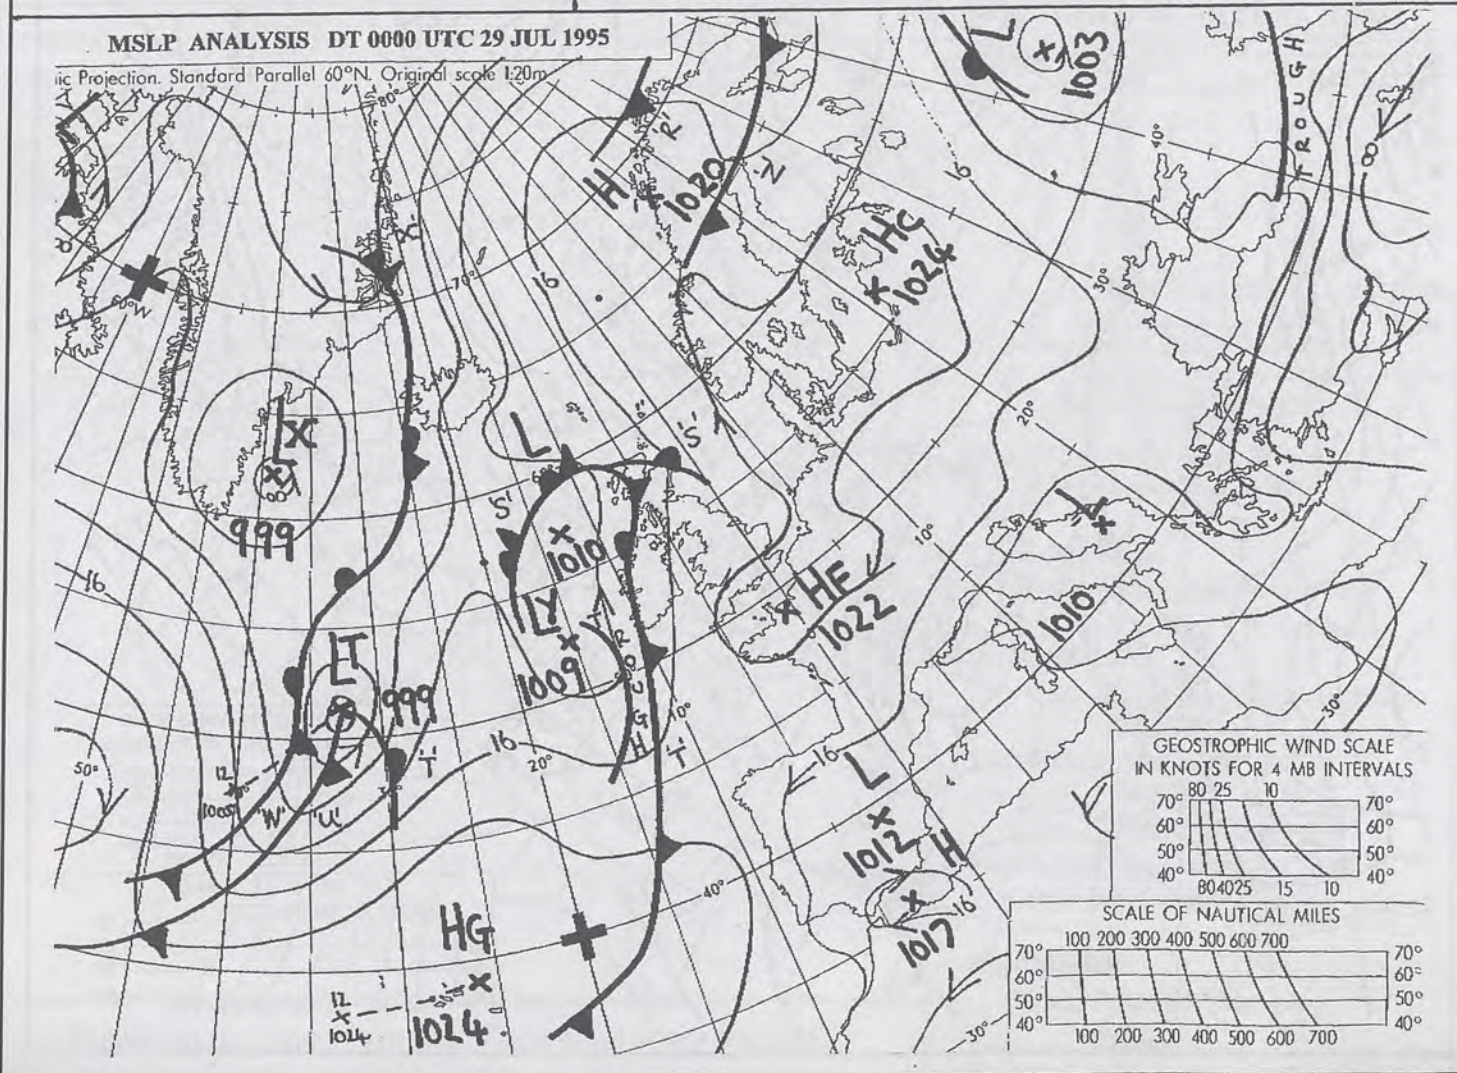 MSLP ANALYSIS DT 0000 UTC 29 JUL 1995
ic Projection. Standard Parallel 60°N. Original scale 1:20m
80°
L
1003
TROUGH
40°
'R'
H
1020
'N'
16
8
HG
1024
30°
'X'
70°
16
60°W
20°
L
'S'
LX
999
'S'
10°
L
1010
HF
1022
1010
16
LY
1009
LT
999
TROUGH
10°
'T'
30°
16
20°
'T'
50°
12
1005
'W'
'U'
16
L
1012
H
16
1017
40°
HG
12
1024
1024
30°
GEOSTROPHIC WIND SCALE
IN KNOTS FOR 4 MB INTERVALS
80 25 10
70° 70°
60° 60°
50° 50°
40° 40°
80 40 25 15 10
SCALE OF NAUTICAL MILES
100 200 300 400 500 600 700
70° 70°
60° 60°
50° 50°
40° 40°
100 200 300 400 500 600 700